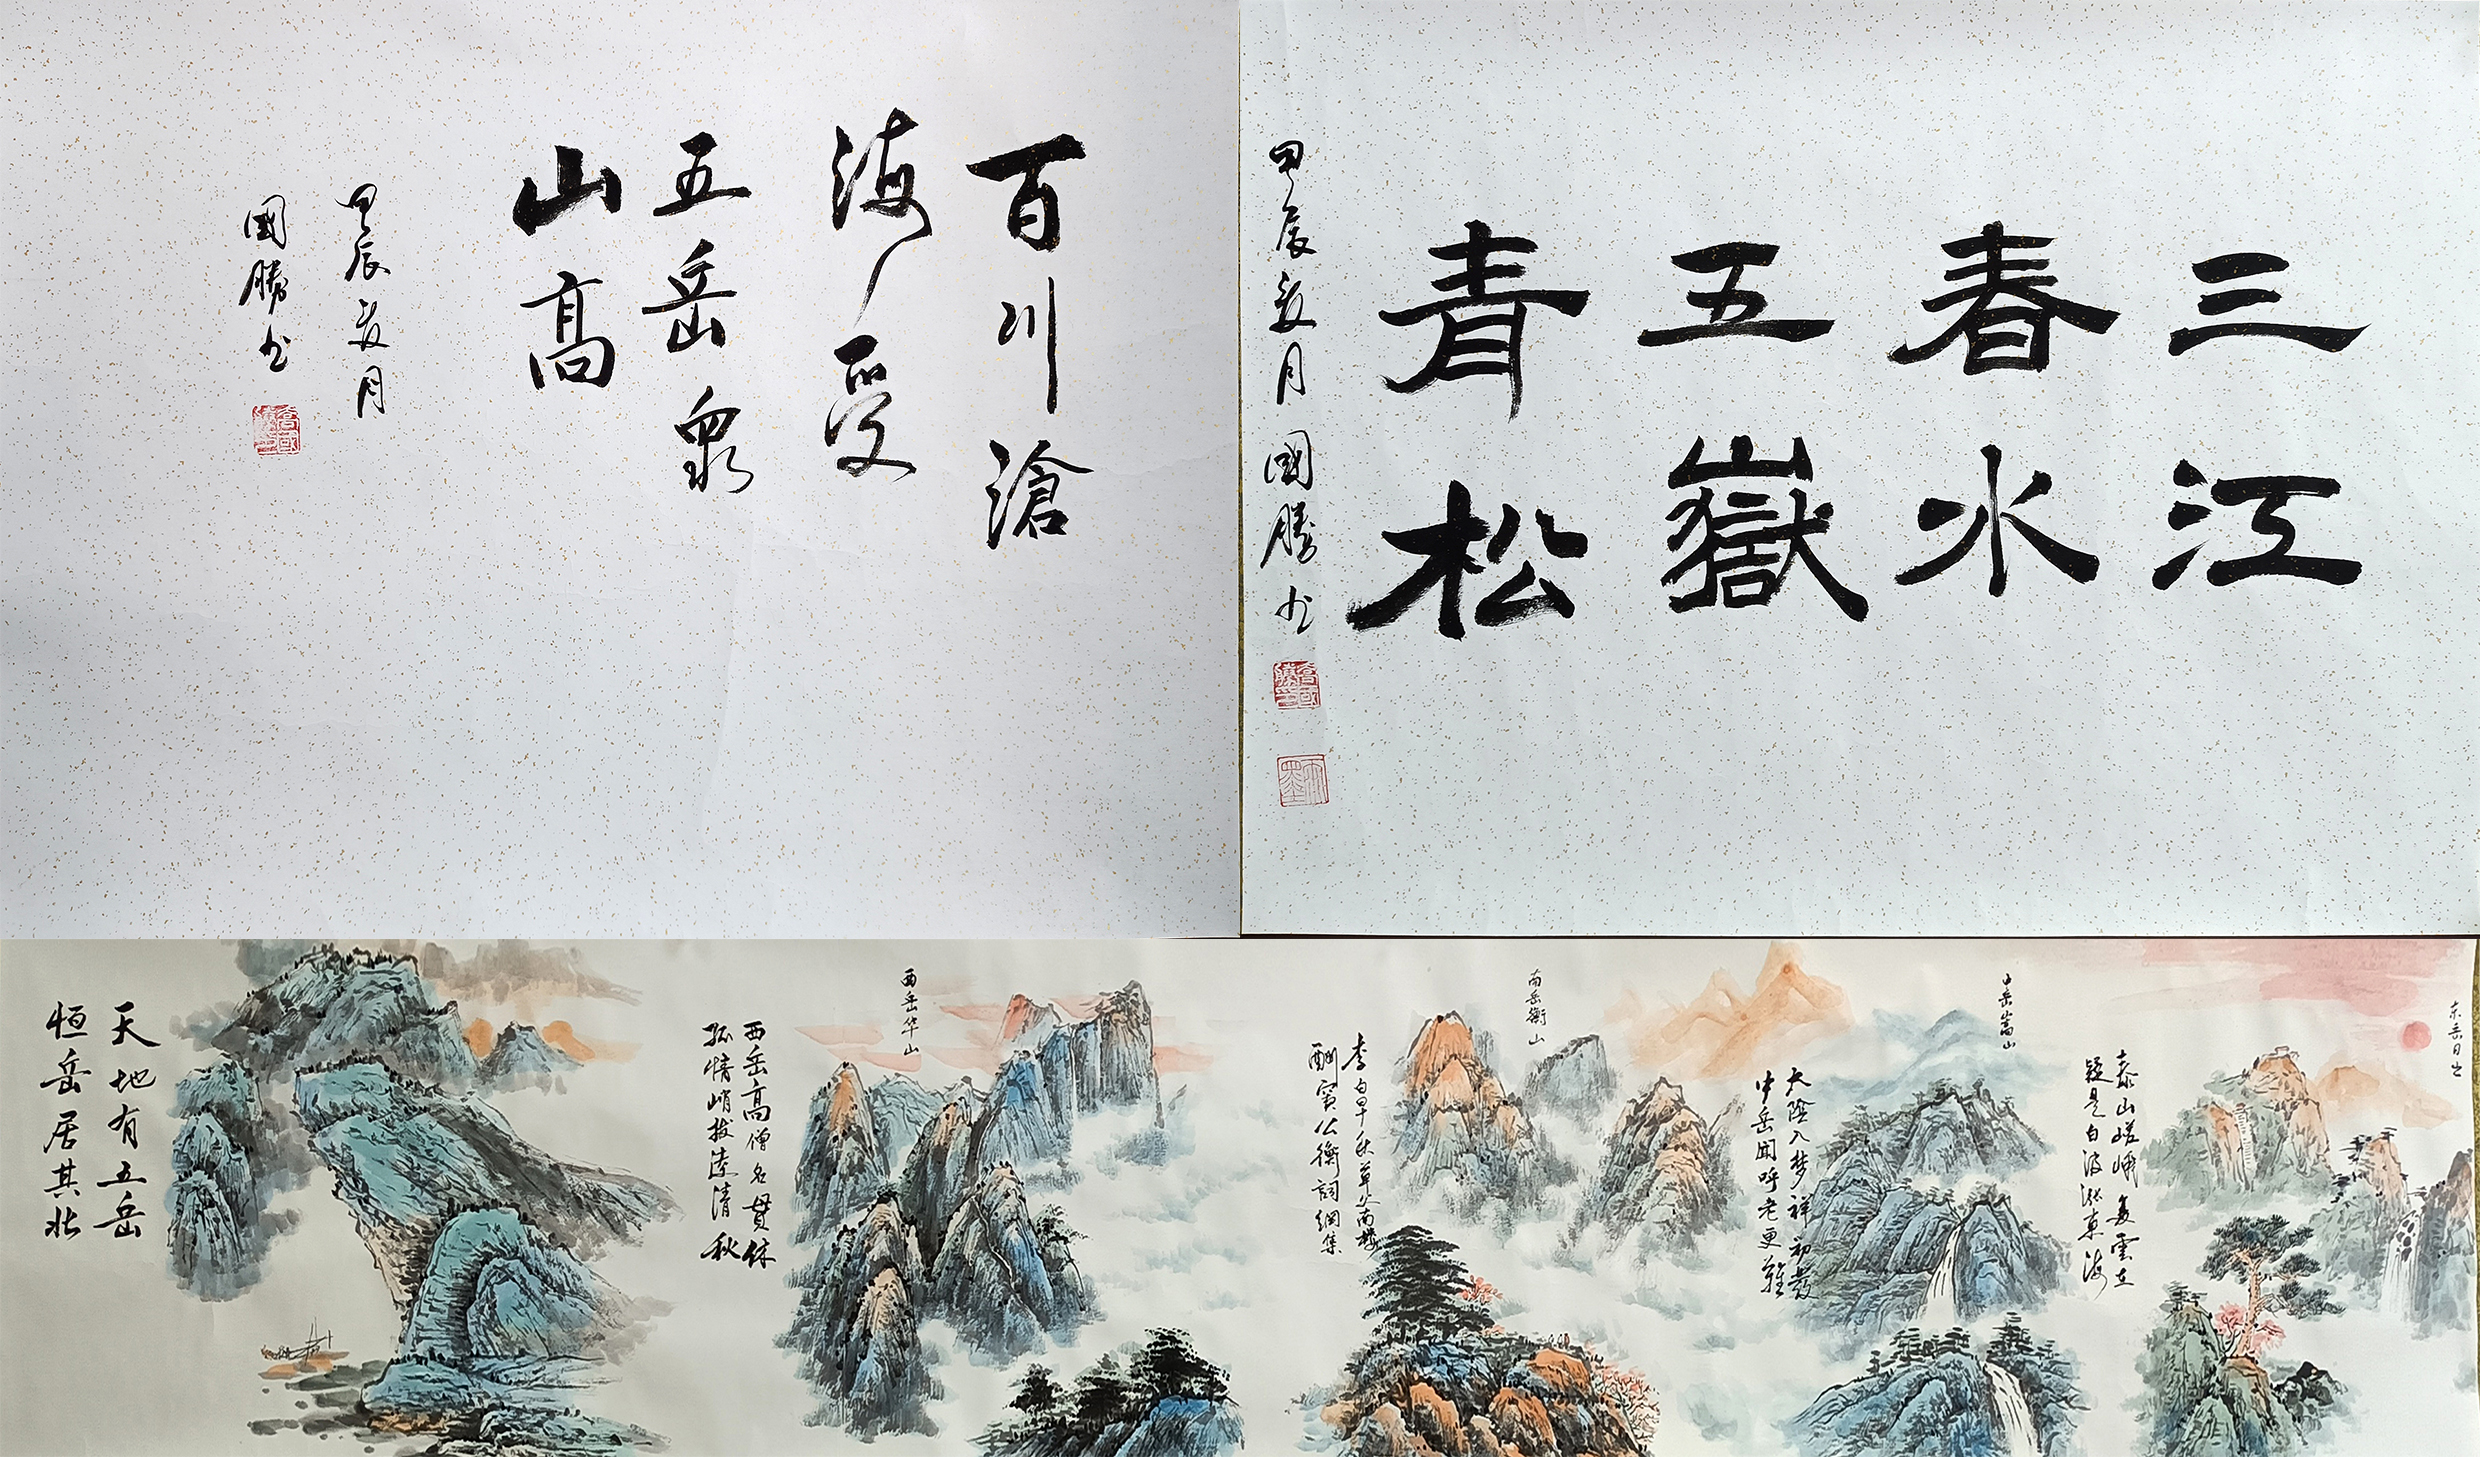 百川滄
海受
五岳眾
山高
甲辰夏月
國勝书
三江
春水
五嶽
青松
甲辰夏月 國勝书
东岳日出
泰山嵯峨夏雲在
疑是白波漲東海
中岳嵩山
大隂入梦祥初發
中岳闻呼老更難
南岳衡山
李白早秋单父南楼
酬窦公衡詞綱集
西岳华山
西岳高僧名貫休
孤情峭拔凌清秋
天地有五岳
恒岳居其北